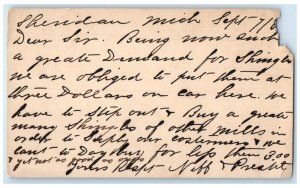 Sheridan Mich Sept 7/8
Dear Sir. Being now such
a greate Demand for Shingles
we are obliged to put them at
three Dollars on car here. we
have to Step out & Buy a greate
many Shingles of other Mills in
order to supply our costermers & we
cant to Day Buy for less then 3.00
& yet not as good as ours
Yours Respt Neff & Presti